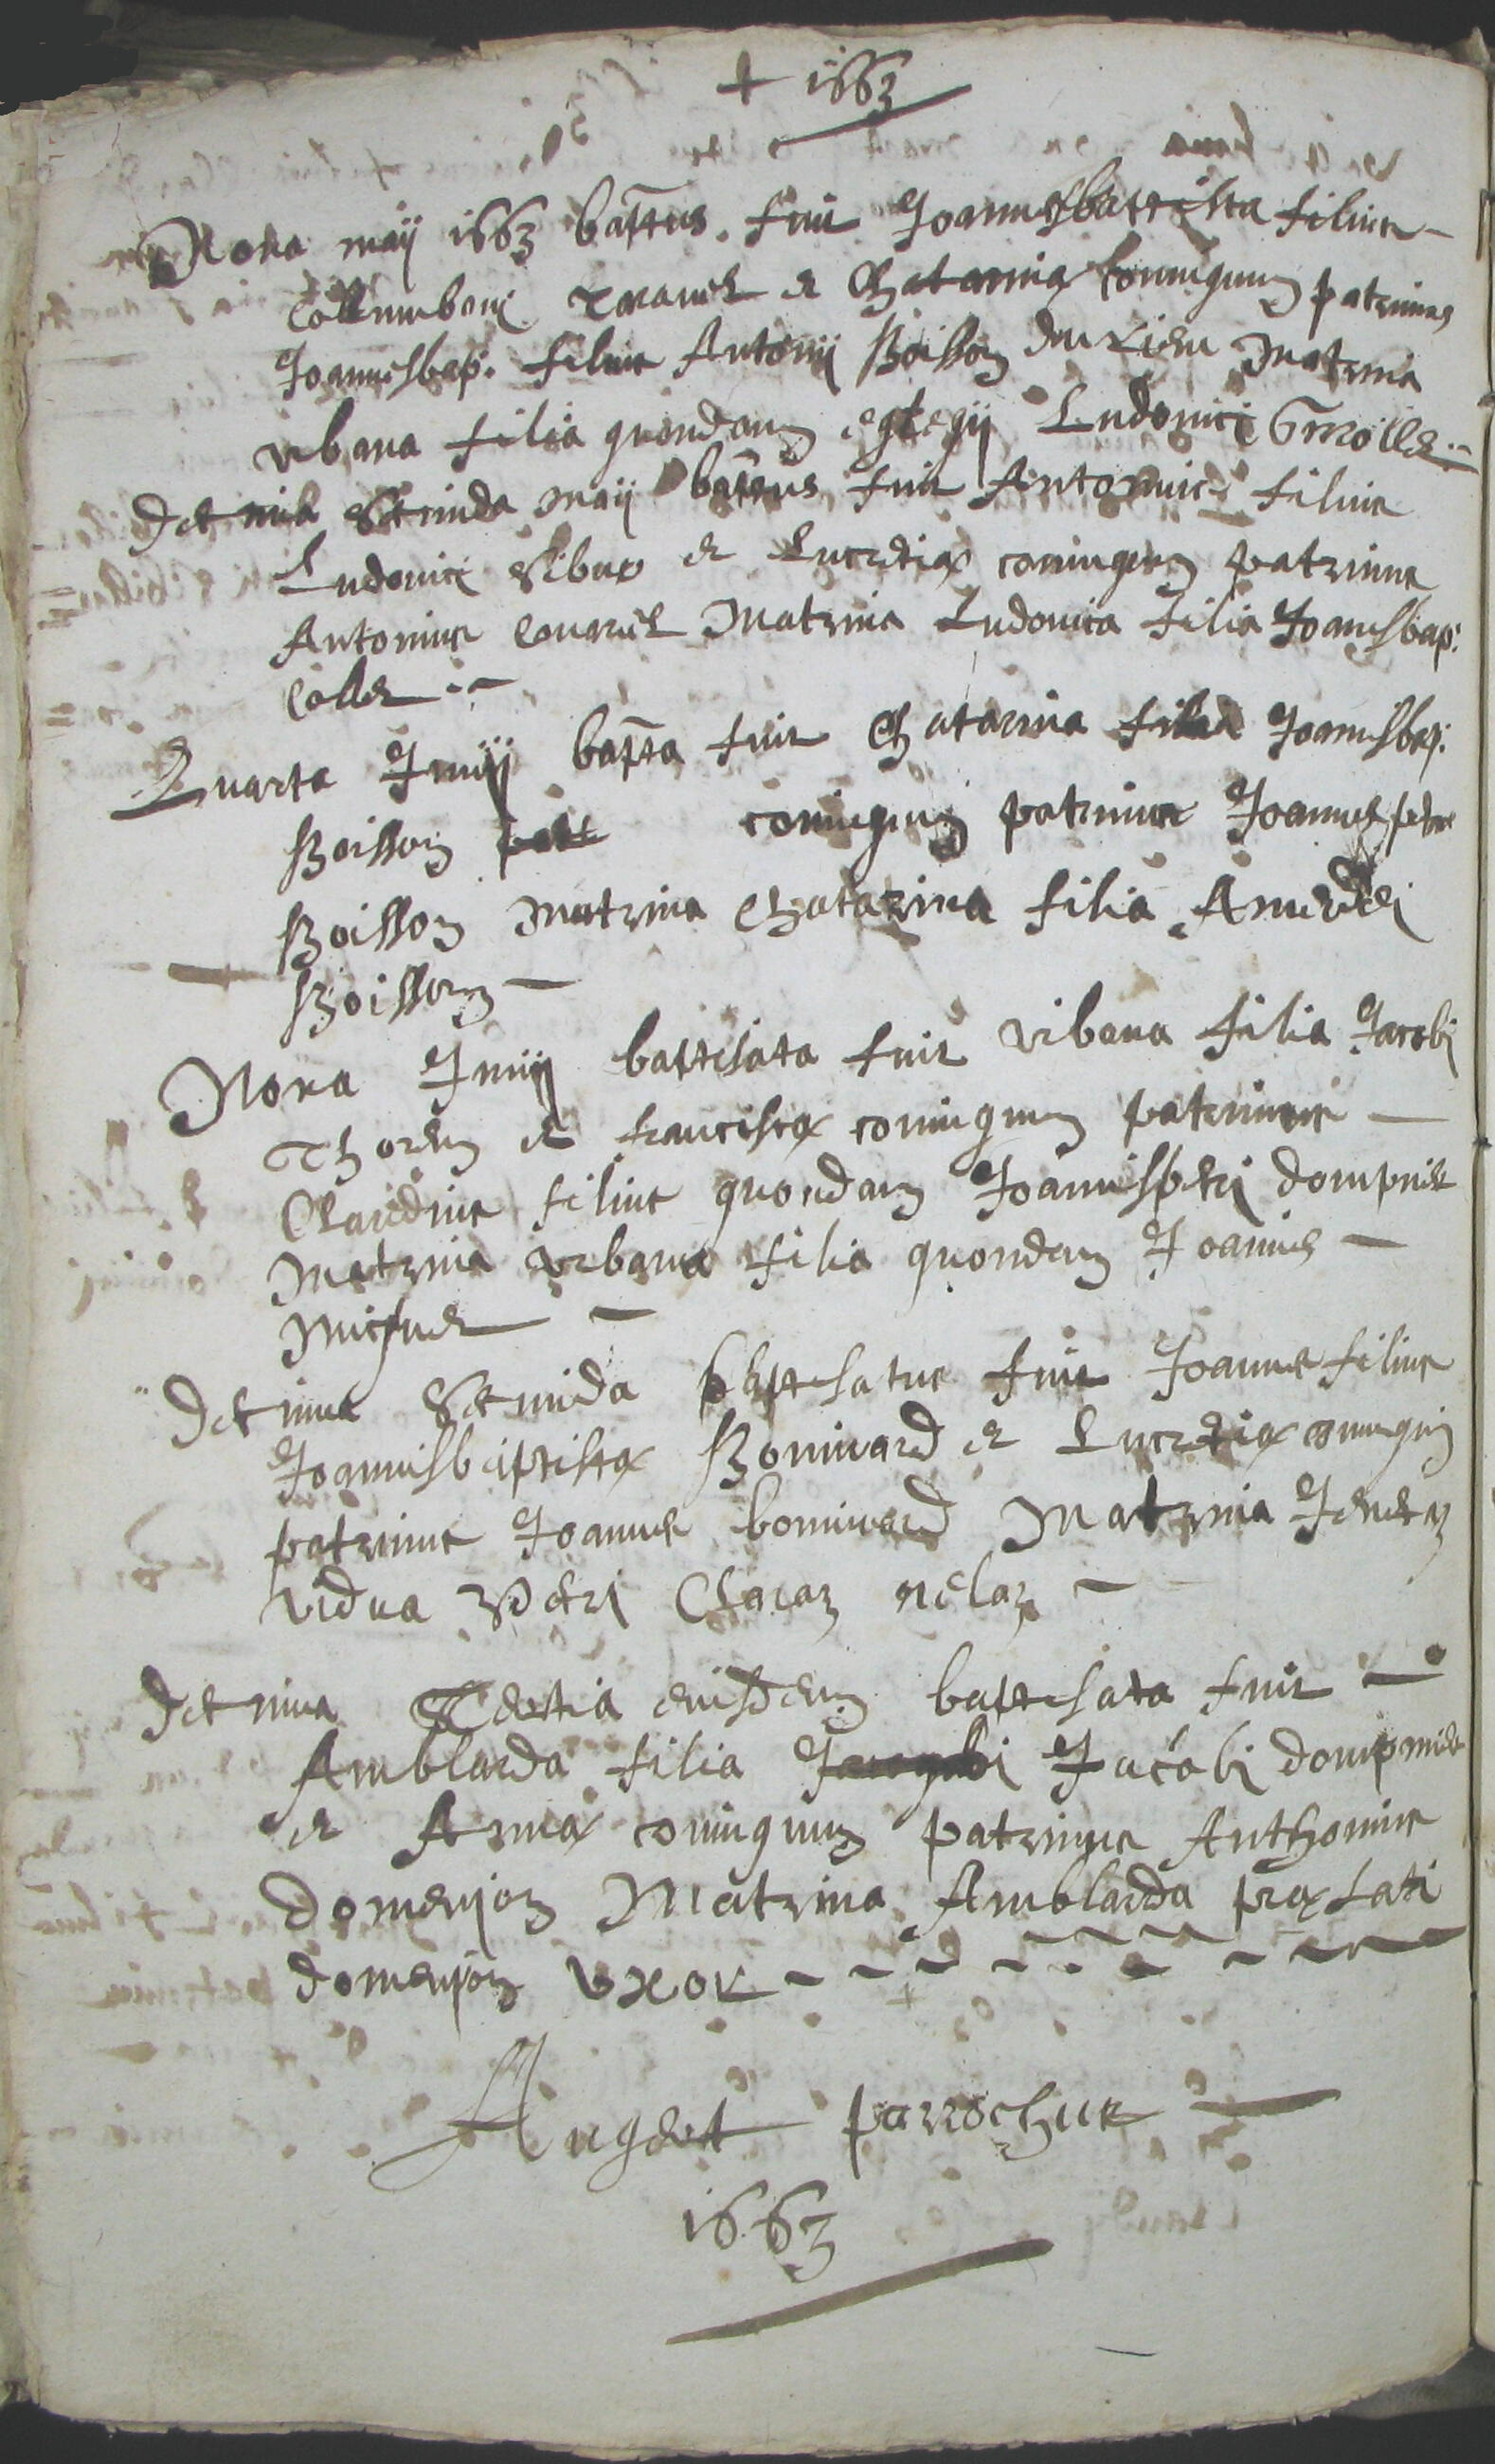 + 1663
Nona maÿ 1663 bap̄tus fuit Joannesbaptista filius
Collumbani et Chatarinæ coniugum patrinus
Joannesbap: filius Antonÿ Boisson matrina
urbana filia quondam egregÿ Ludovici
Decima secunda maÿ bap̄tus fuit Antonius filius
Ludovici et Lucretiæ coniugum patrinus
Antonius matrina Ludovica filia Joannisbap:
Collet
Quarta Junÿ bap̄ta fuit Chatarina filia Joannisbap:
Boisson coniugum patrinus Joannes petrus
Boisson matrina Chatarina filia Amedei
Boisson
Nona Junÿ baptisata fuit urbana filia Jacobi
Thorens et franciscæ coniugum patrinus
Claudius filius quondam Joannispetri dompnier
matrina urbana filia quondam Joannis
Decima secunda baptisatus fuit Joannes filius
Joannisbaptistæ Bonivard et Lucretiæ coniugum
patrinus Joannes bonivard matrina
vidua Petri
Decima Tertia eiusdem baptisata fuit
Amblarda filia Jacobi dompnier
et Annæ coniugum patrinus Anthonius
domenjon Matrina Amblarda præfati
domenjon uxor
Auget parrochus
1663